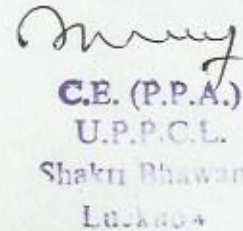 C.E. (P.P.A.)
U.P.P.C.L.
Shakti Bhawan
Lucknow